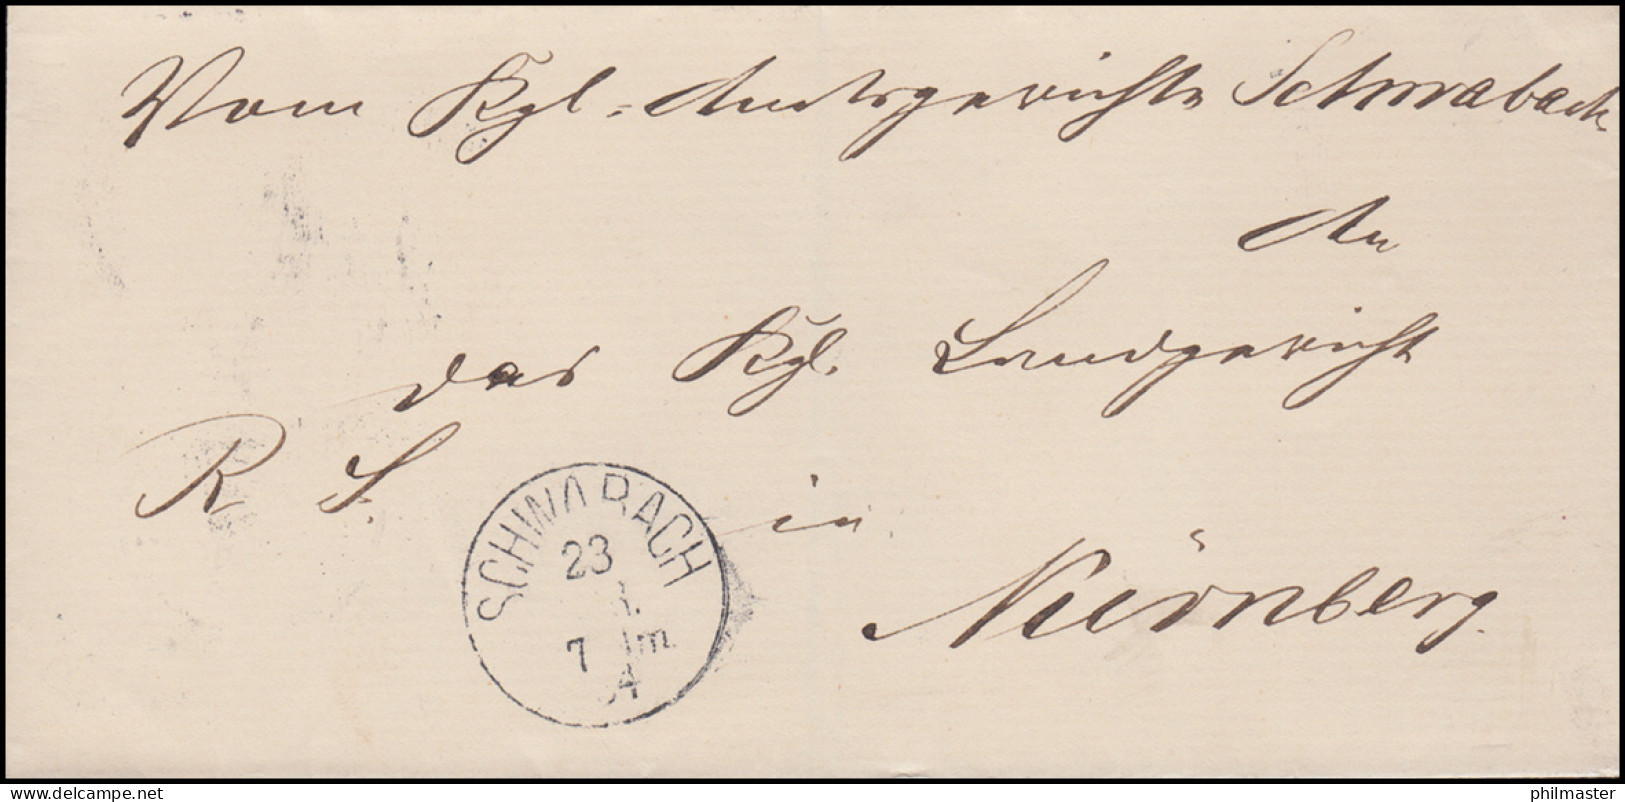 Vom Kgl. Amtsgerichte Schwabach
An
das Kgl. Landgericht
R. S.
in
Nürnberg.
SCHWABACH
23
7
www.delcampe.net
philmaster